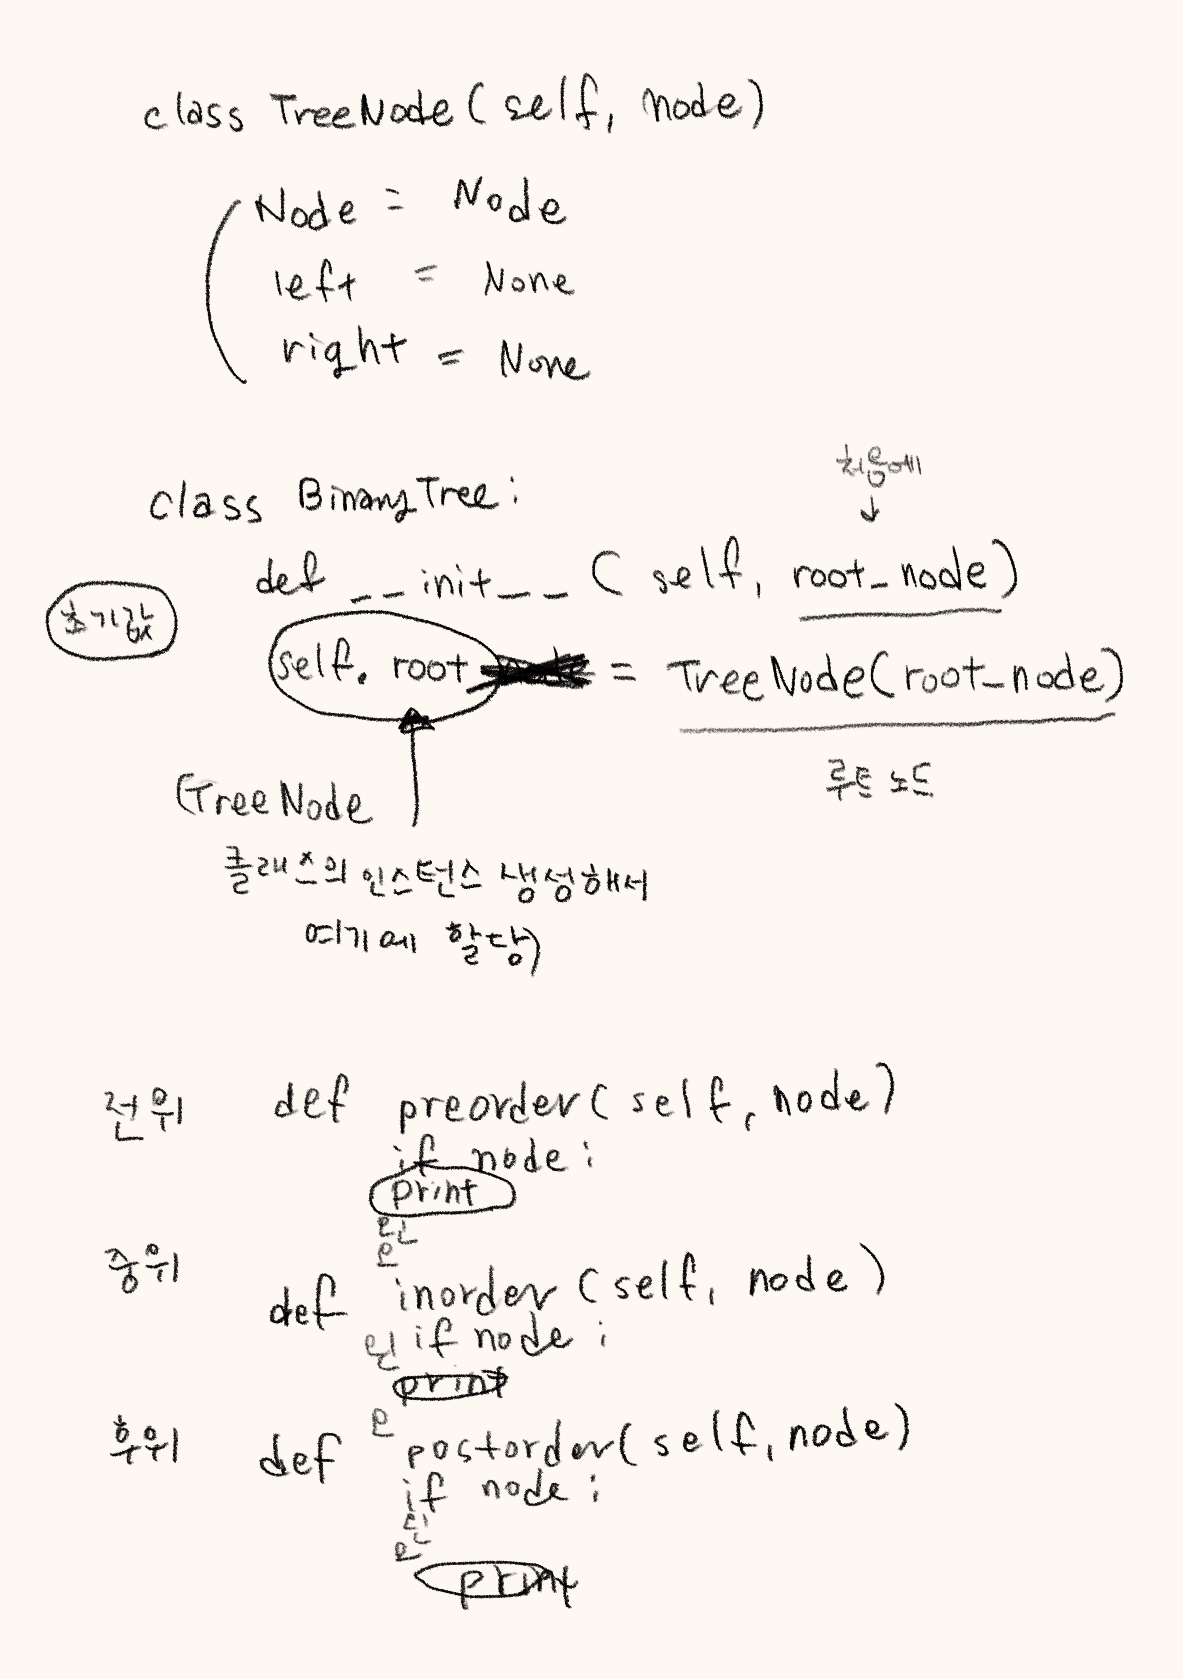 class TreeNode(self, node)
Node = Node
left = None
right = None
class BinaryTree:
처음에
↓
def __init__(self, root_node)
초기값
self.root = TreeNode(root_node)
루트 노드
(TreeNode
클래스의 인스턴스 생성해서
여기에 할당)
전위 def preorder(self, node)
if node:
print
왼
오
중위
def inorder(self, node)
왼 if node:
print
오
후위 def postorder(self, node)
if node:
왼
오
print